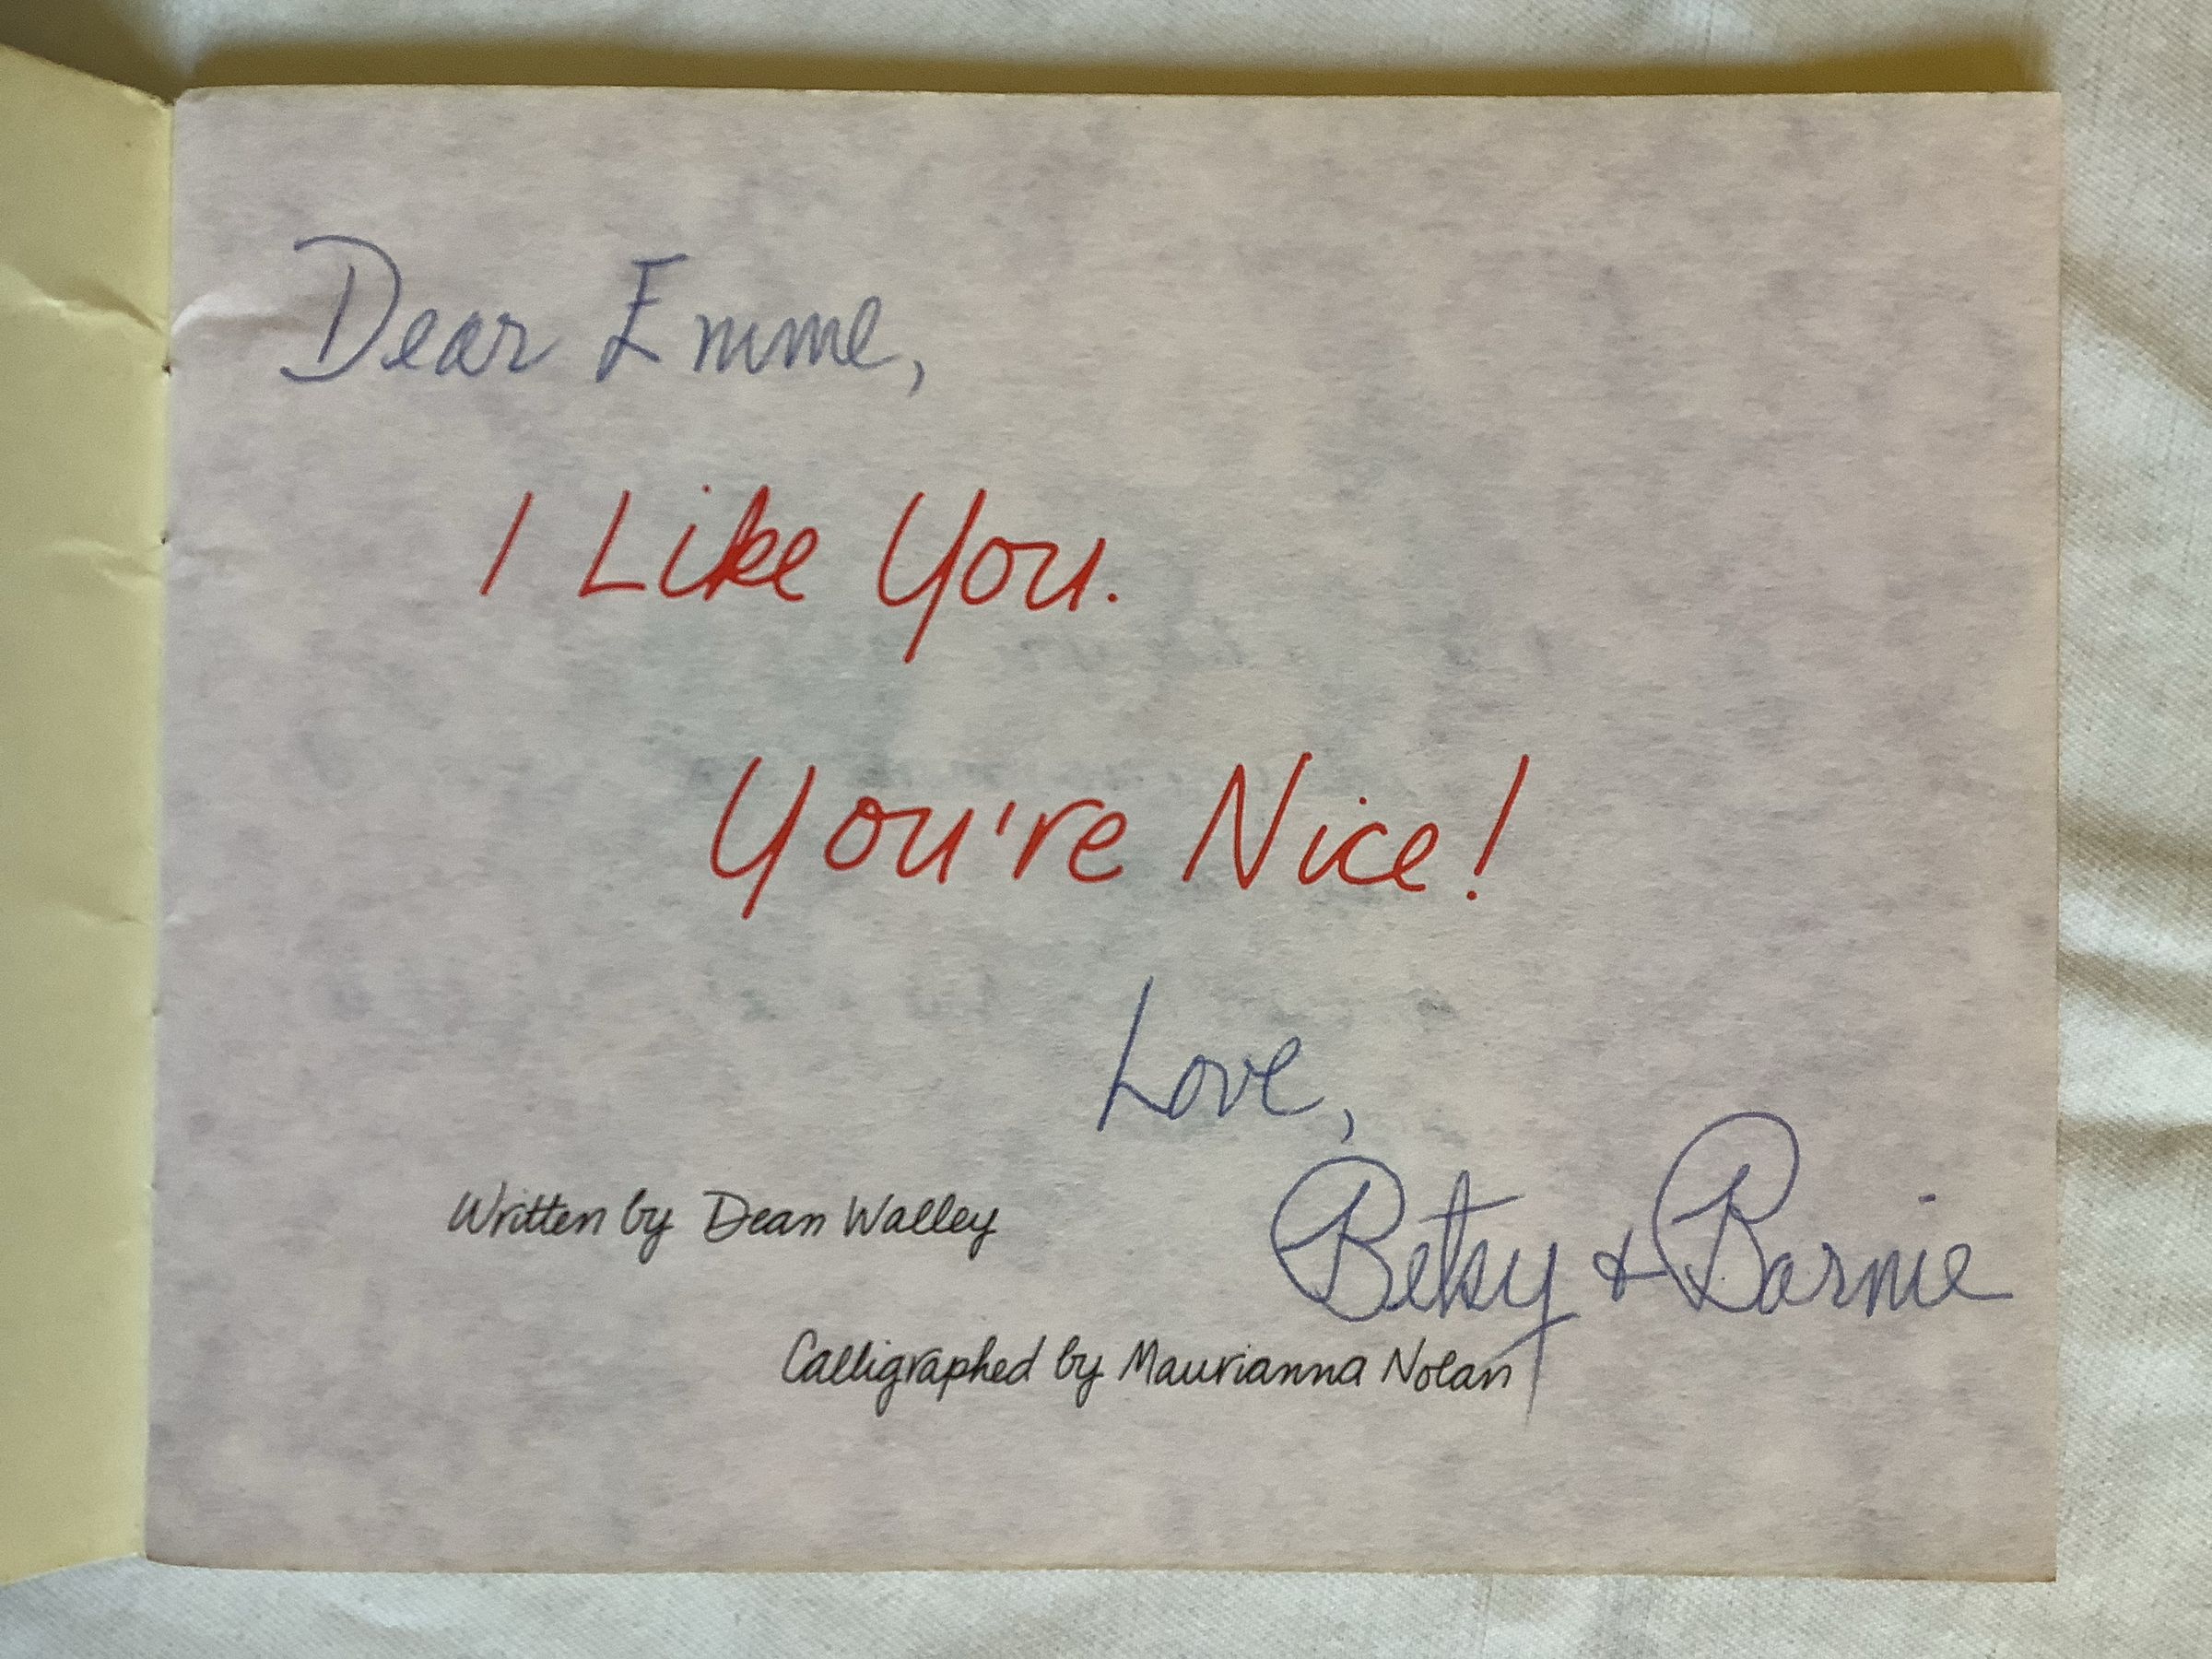 Dear Emme,
I Like You.
You're Nice!
Love,
Betsy & Barnie
Written by Dean Walley
Calligraphed by Maurianna Nolan